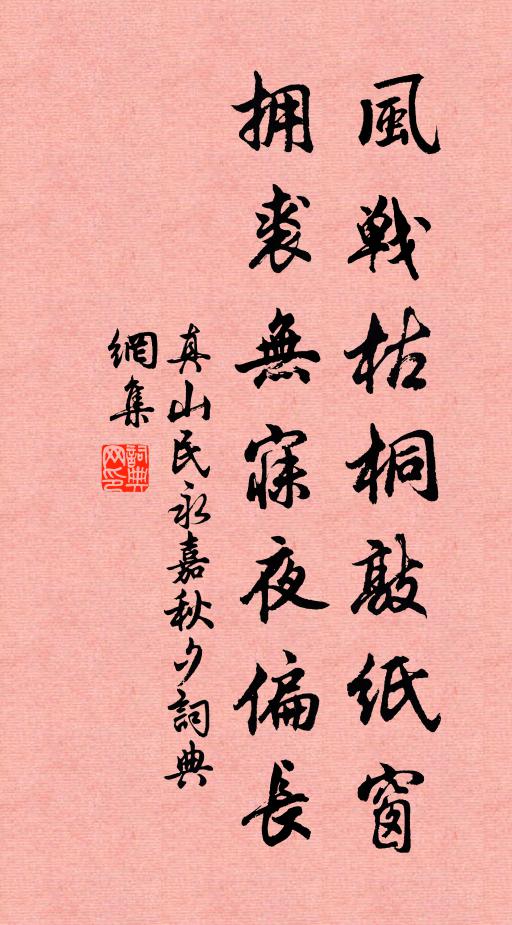 風戰枯桐敲紙窗
拥裘無寐夜偏長
真山民永嘉秋夕詞典
網集
詞典網印